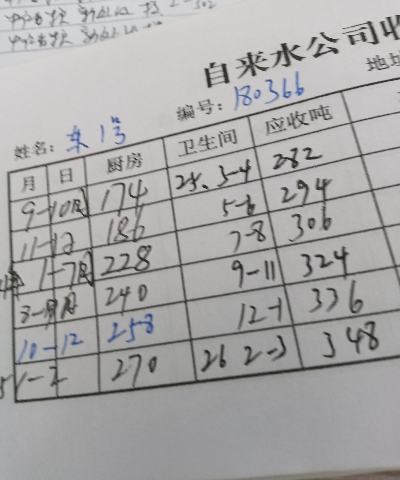 自来水公司收
姓名: 东1号 编号: 180366 地址
月 日 厨房 卫生间 应收吨
9-10月 174 25、3-4 282
11-12 186 5-6 294
1-7月 228 7-8 306
8-9月 240 9-11 324
10-12 258 12-1 336
1-2 270 26 2-3 348